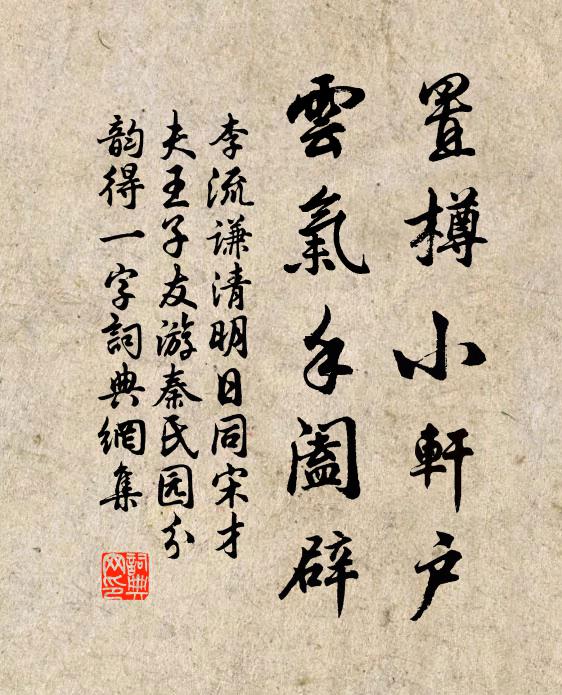 置樽小軒户
雲氣手阖辟
李流谦清明日同宋才
夫王子友游秦民园分
韵得一字詞典網集
詞典
网印